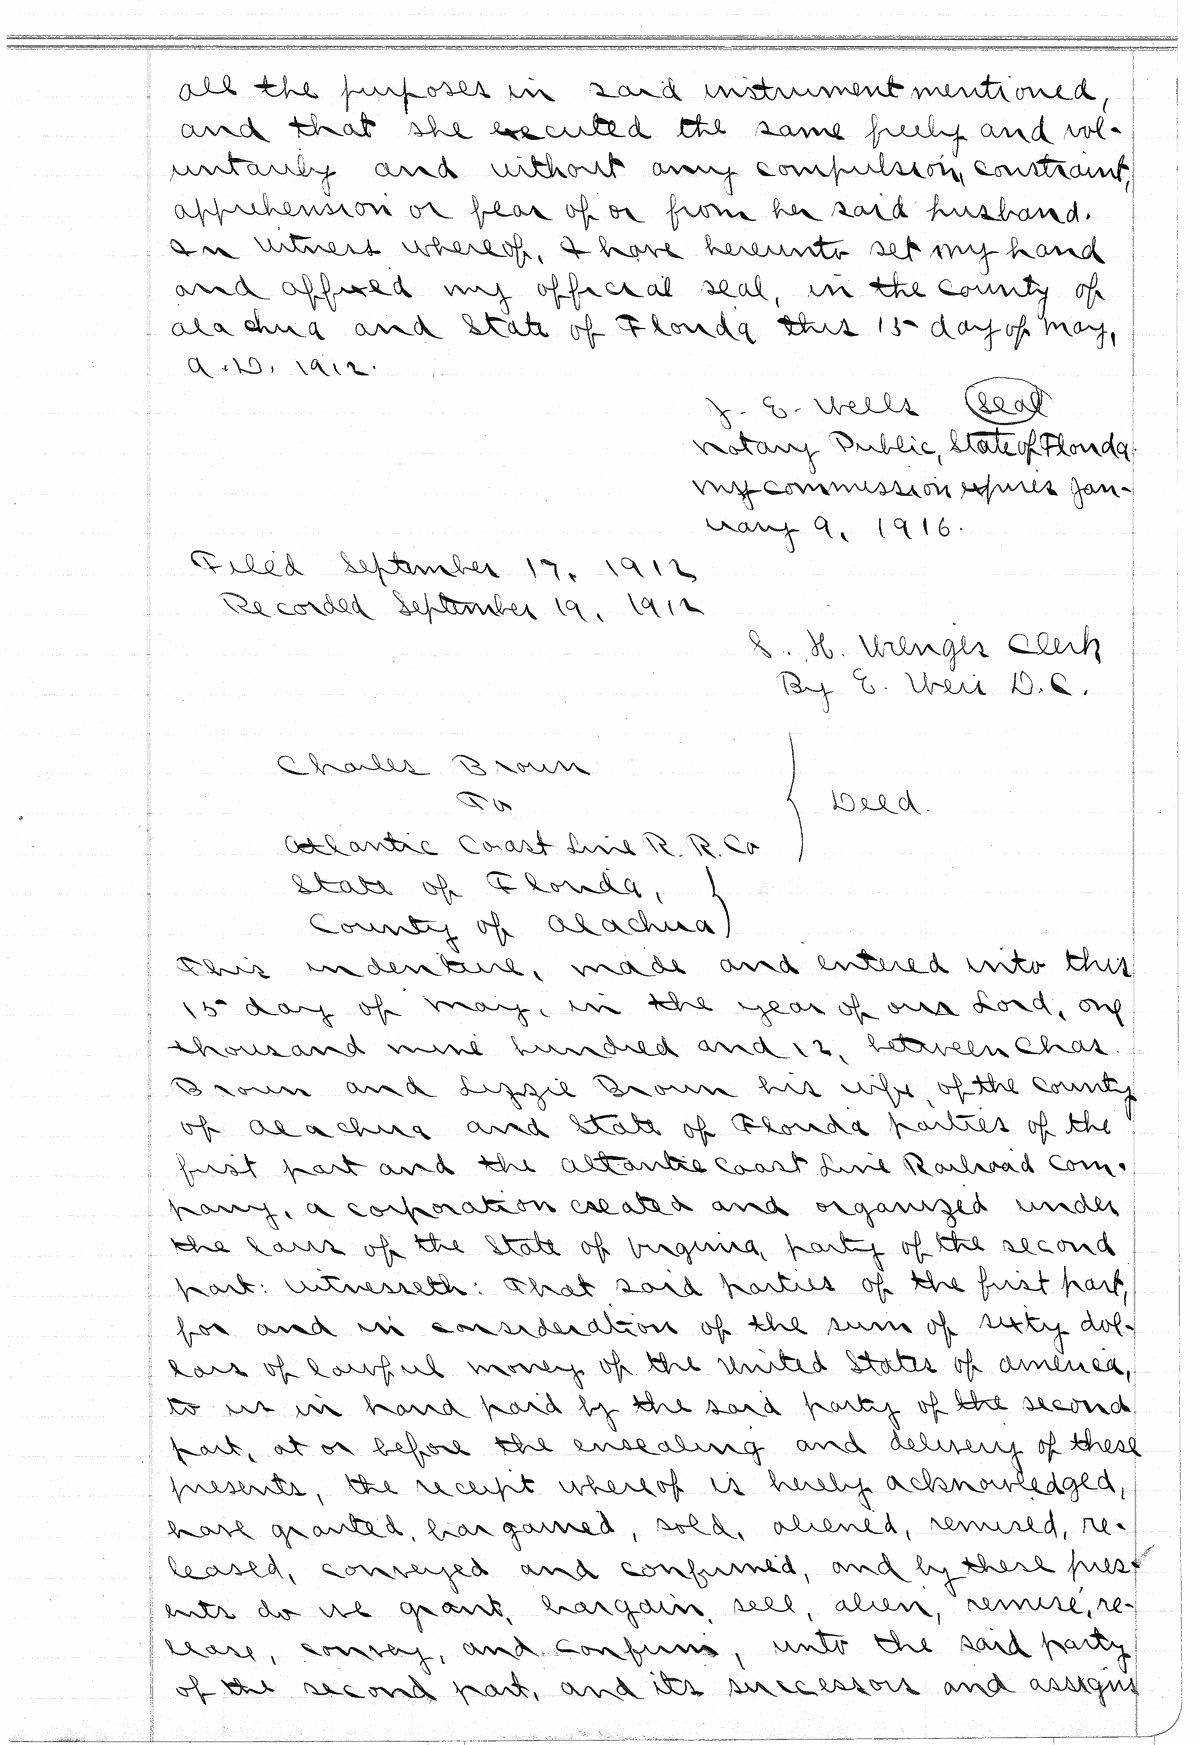 all the purposes in said instrument mentioned,
and that she executed the same freely and vol-
untarily and without any compulsion, constraint,
apprehension or fear of or from her said husband.
In witness whereof, I have hereunto set my hand
and affixed my official seal, in the county of
Alachua and State of Florida this 15 day of May,
A.D. 1912.
J. E. Wells (Seal)
Notary Public, State of Florida
My commission expires Jan-
uary 9, 1916.
Filed September 17, 1912
Recorded September 19, 1912
S. H. Wienges Clerk
By E. Weir D.C.
Charles Brown
To
Atlantic Coast Line R. R. Co
Deed.
State of Florida,
County of Alachua
This indenture, made and entered into this
15 day of May, in the year of our Lord, one
thousand nine hundred and 12, between Chas.
Brown and Lizzie Brown his wife, of the County
of Alachua and State of Florida parties of the
first part and the Altantic Coast Line Railroad Com-
pany, a corporation created and organized under
the laws of the State of Virginia, party of the second
part: Witnesseth: That said parties of the first part,
for and in consideration of the sum of sixty dol-
lars of lawful money of the United States of America,
to us in hand paid by the said party of the second
part, at or before the ensealing and delivery of these
presents, the receipt whereof is hereby acknowledged,
have granted, bargained, sold, aliened, remised, re-
leased, conveyed and confirmed, and by these pres-
ents do we grant, bargain, sell, alien, remise, re-
lease, convey, and confirm, unto the said party
of the second part, and its successors and assigns